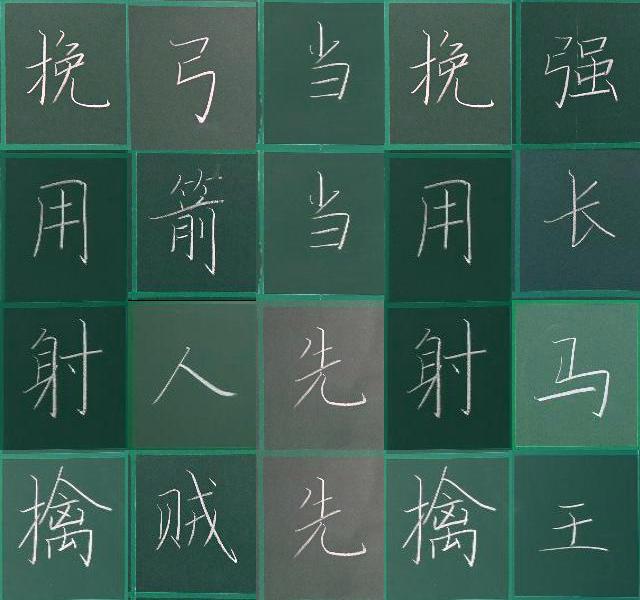 挽弓当挽强
用箭当用长
射人先射马
擒贼先擒王